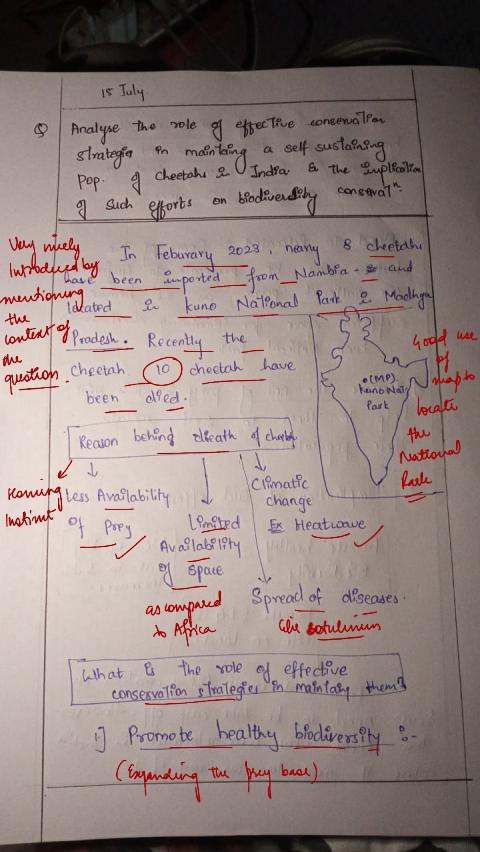 15 July
Q Analyse the role of effective conservation
strategies in maintaing a self sustaining
Pop. of Cheetahs in India & the implication
of such efforts on biodiversity conservatn.
Very nicely
Introduced by
mentioning
the
context of
the
question.
In Feburary 2023, neary 8 cheetahs
have been imported from Nambia - and
lalated in kuno National Park in Madhya
Pradesh. Recently the
Cheetah 10 cheetah have
been died.
(MP).
Kuno Natn
Park
Good use
of
map to
locate
the
National
Park
Reason behind death of cheetah
Homing
Instinct
Less Availability
of Prey
Limited
Availability
of space
as compared
to Africa
Climatic
change
Ex Heatwave
Spread of diseases.
like botulinium
What is the role of effective
conservation strategies in maintaing them?
1] Promote healthy biodiversity :-
(Expanding the prey base)